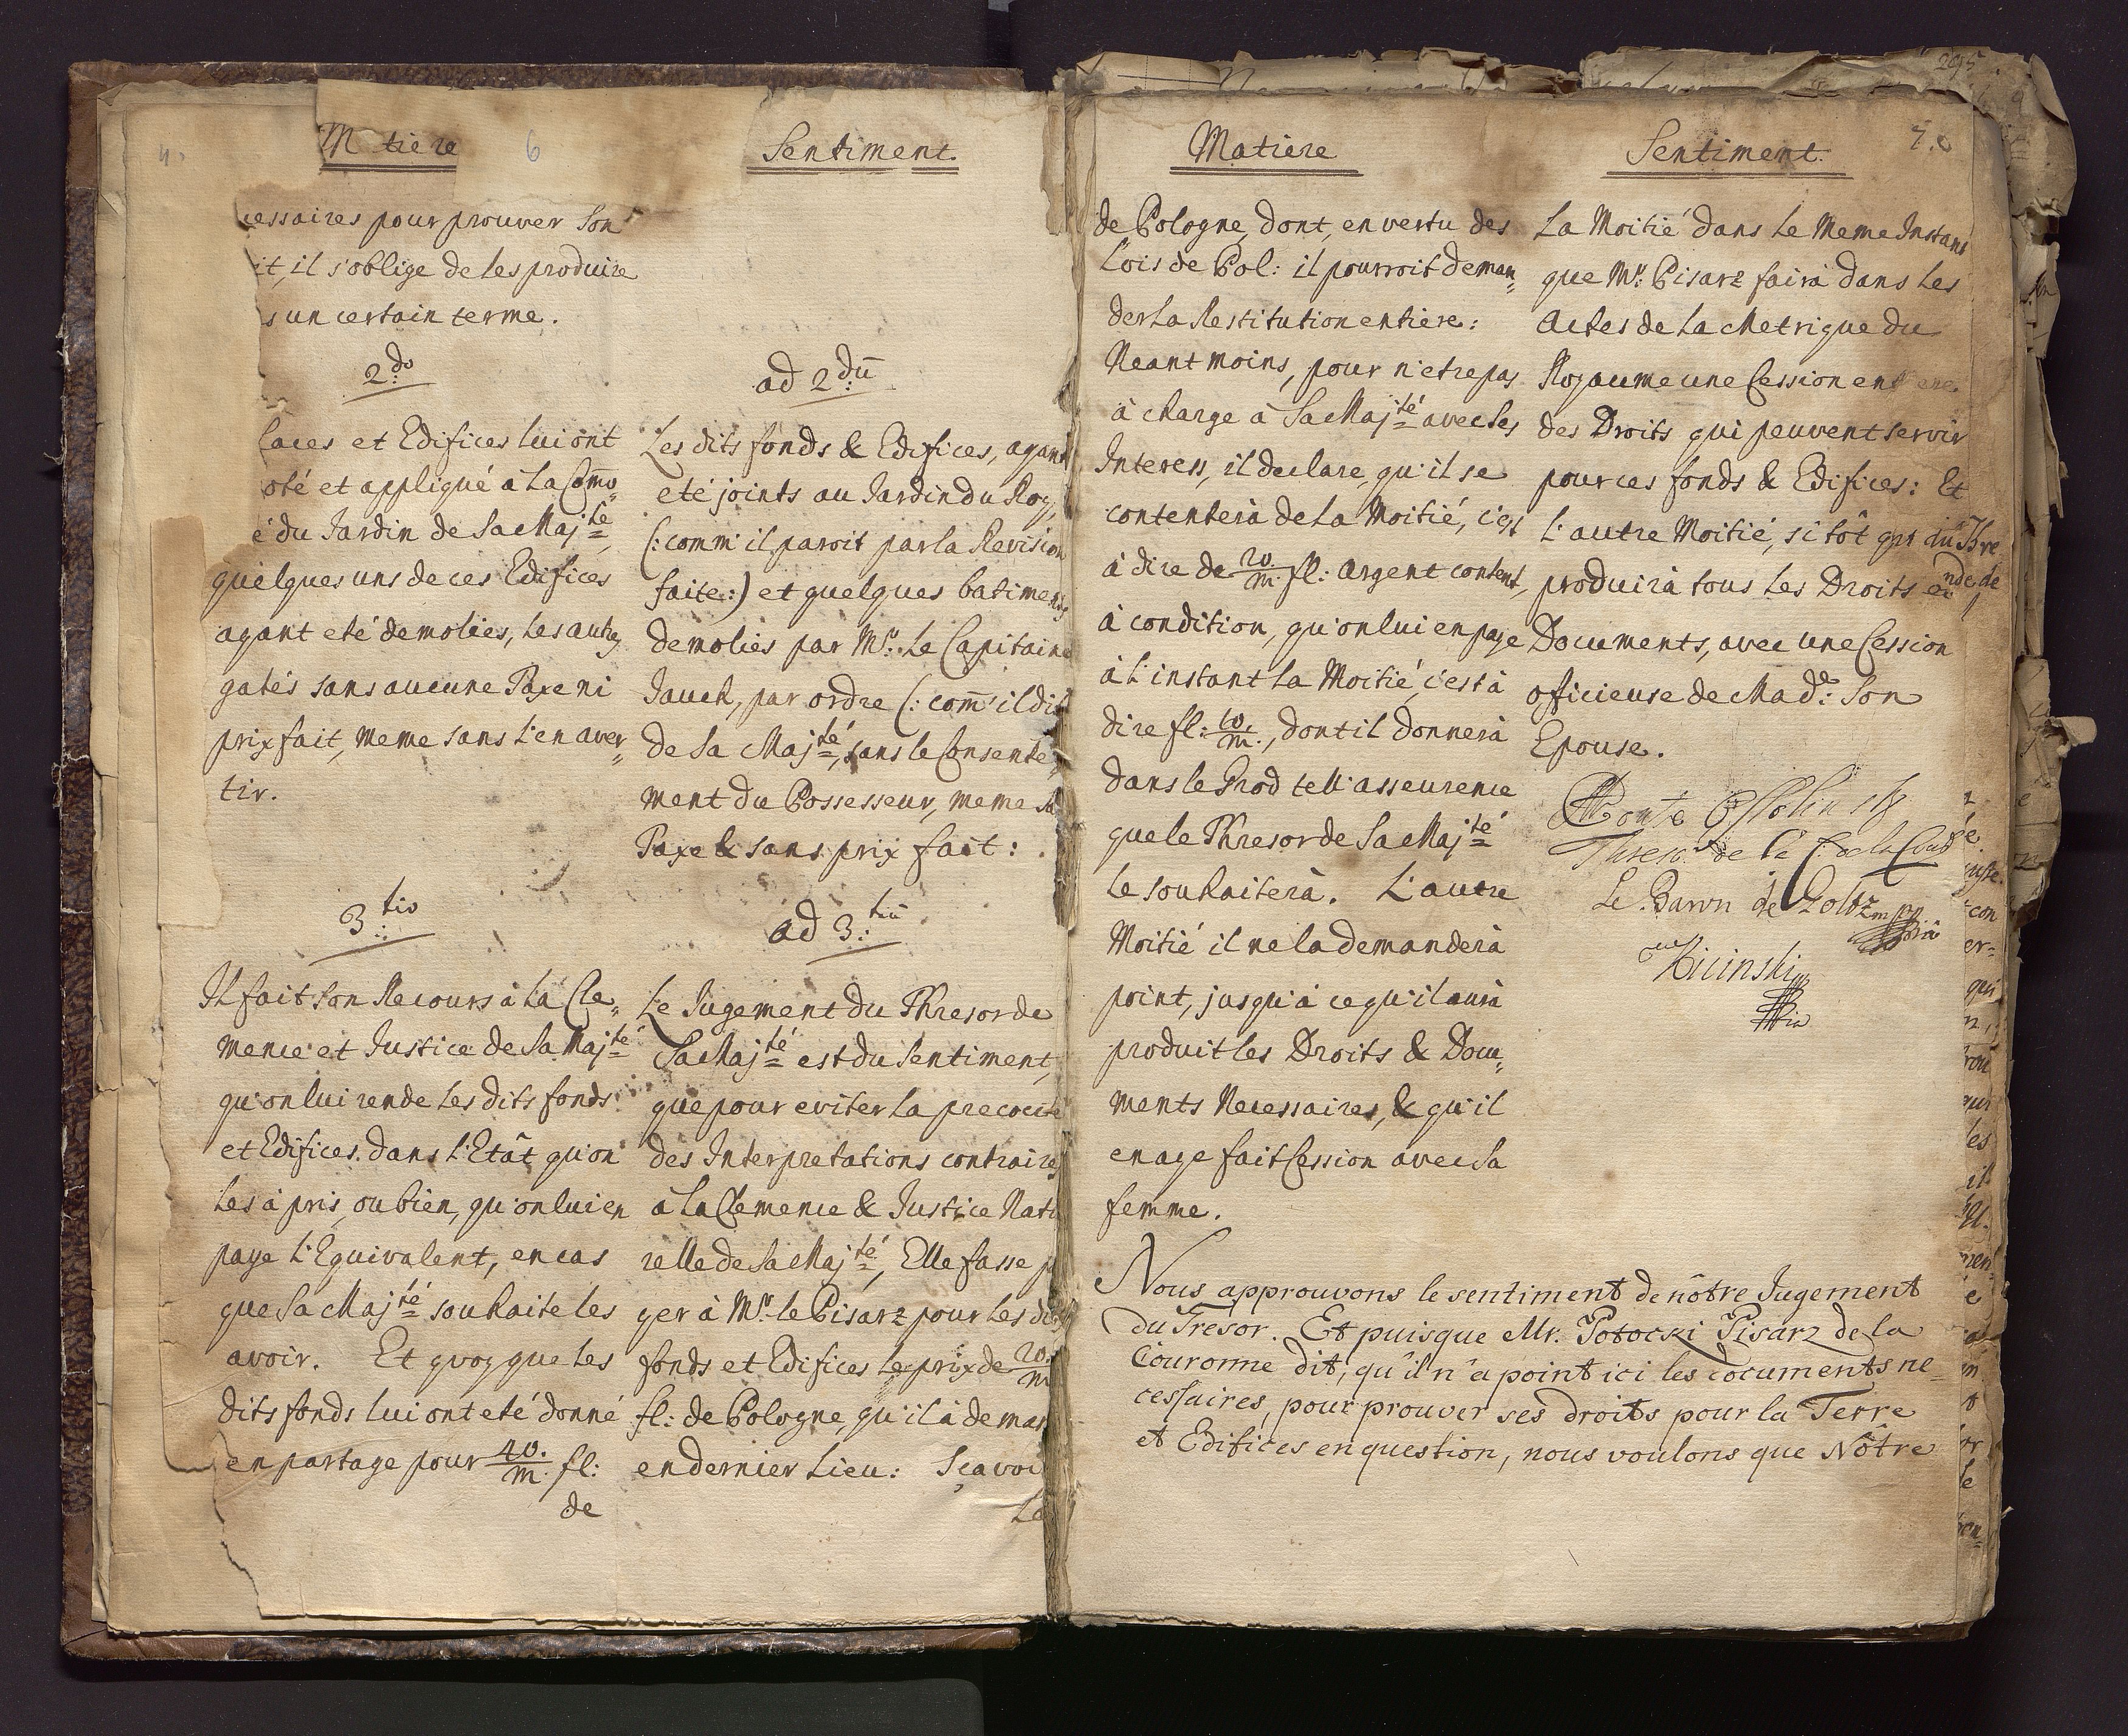 6
Matiere
cessaires pour prouver Son
it, il s'oblige de les produire
s un certain terme.
2do
laces et Edifices lui ont
oté et appliqué à La Com̄o=
é du Jardin de Sa Majté
quelques uns de ces Edifices
ayant eté demoliés, les autres
gatés sans aucune Taxe ni
prix fait, meme sans l'en aver=
tir.
3:tio
Il fait son Recours à La Cle=
mence et Justice de Sa Majté
qu'on lui rende les dits fonds
et Edifices dans l'Etât qu'on
les à pris, ou bien, qu'on lui en
paye l'Equivalent, en cas
que Sa Majté souhaite les
avoir. Et quoy que les
dits fonds lui ont eté donné
en partage pour 40./m. fl:
de
Sentiment.
ad 2:dū
Les dits fonds & Edifices, ayant
eté joints au Jardin du Roy,
(: comm' il paroit par la Revision
faite :) et quelques batimens
demoliés par Mr. Le Capitaine
Jauch, par ordre (: com̄' il dit
de Sa Majté, sans le Consente=
ment du Possesseur, meme sa
Taxe & sans prix fait:
ad 3:tiū
Le Jugement du Thresor de
Sa Majté est du Sentiment,
que pour eviter la precocité
des Interpretations contraires
à la Clemence & Justice Natu
relle de Sa Majté, Elle fasse p
yer à Mr. le Pisarz pour les dits
fonds et Edifices le prix de 20./m
fl: de Pologne, qu'il à deman
en dernier Lieu: Sçavoi
La
7.
295
Matiere
de Pologne, dont, en vertu des
Lois de Pol: il pourroit deman=
der La Restitution entiere:
Neant moins, pour n'etre pas
à charge à Sa Majté avec ses
Interess, il declare, qu'il se
contenterà de la Moitié, c'est
à dire de 20./m. fl: argent content,
à condition, qu'on lui en paye
à l'instant la Moitié, c'est à
dire fl: 10./m., dont il donnerà
dans le Grod tell' asseurence
que le Thresor de Sa Majté
le souhaiterà. L'autre
Moitié il ne la demanderà
point, jusqu'à ce qu'il aurà
produit les Droits & Docu=
ments Necessaires, & qu'il
en aye fait Cession avec Sa
femme.
Sentiment.
La Moitié dans le Meme Instant
que Mr. Pisarz fairà dans les
Actes de la Metrique du
Royaume une Cession entiere
des Droits qui peuvent servir
pour ces fonds & Edifices: Et
l'autre Moitié, si tôt
produirà tous les Droits
Documents, avec une Cession
officieuse de Made: Son
Epouse.
Conte Ossolinsky
Thresor de la C. de la Cour
Le Baron de Goltz mpp
Kicinski
Nous approuvons le sentiment de nôtre Jugement
du Trésor. Et puisque Mr. Potocki Pisarz de la
Couronne dit, qu'il n'a point ici les documents ne=
cessaires, pour prouver ses droits pour la Terre
et Edifices en question, nous voulons que Nôtre